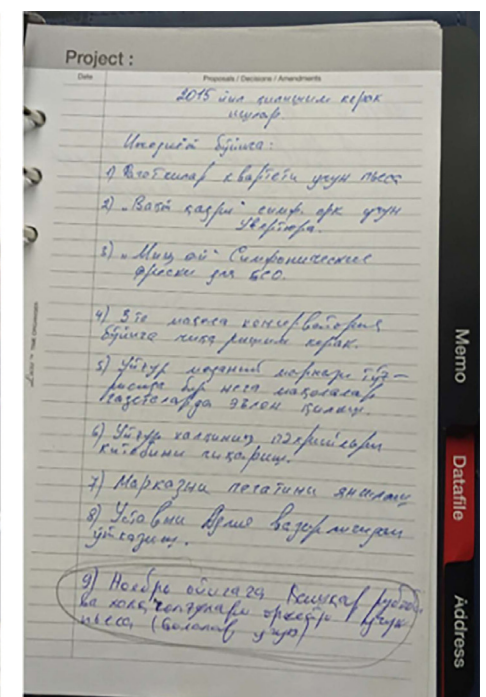 Project :
Date
Proposals / Decisions / Amendments
2015 йил қилишим керак
ишлар
Ижодиёт бўйича:
1) Флейтачилар квартети учун пьеса
2) „Вақт қадри" симф. орк учун
Увертюра.
3) „Минг ой" Симфонические
фрески для БСО.
4) 3 та мақола консерватория
бўйича чиқаришим керак.
5) Уйғур маданий маркази тўғ-
рисида бир неча мақолалар
газеталарда эълон қилиш.
6) Уйғур халқининг
китобини чиқариш.
7) Марказни печатини янгилаш
8) Уставни Адлия вазирлигидан
ўтказиш.
9) Ноябрь ойигача рубоб
ва халқ чолғулари оркестри учун
пьеса
Memo
Datafile
Address